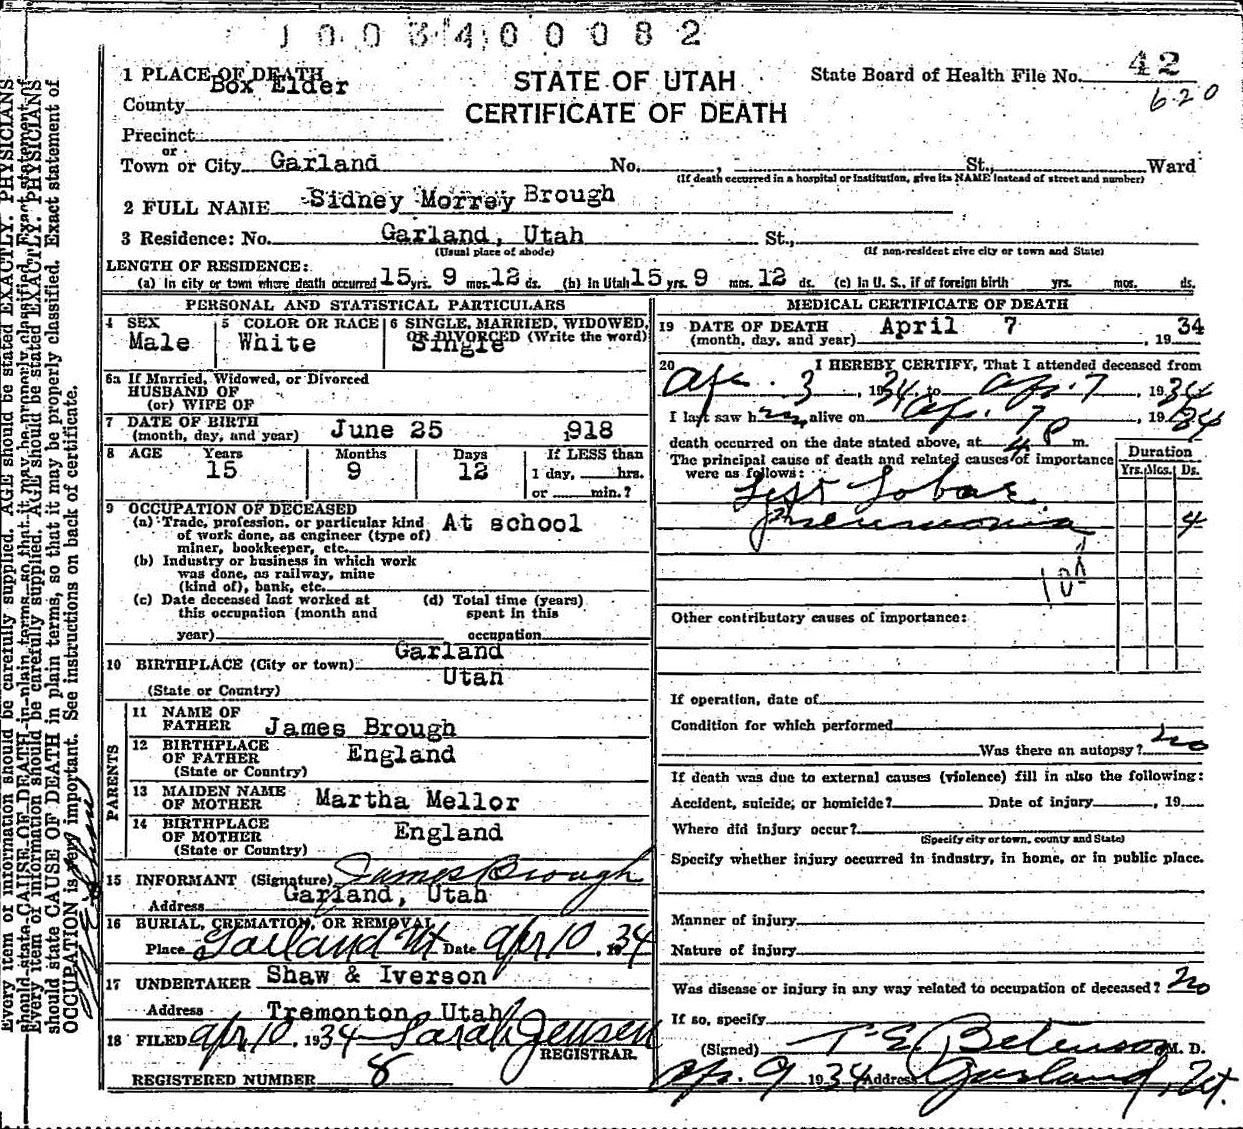 1003400082
1 PLACE OF DEATH
STATE OF UTAH
CERTIFICATE OF DEATH
State Board of Health File No. 42
620
County Box Elder
Precinct
or
Town or City Garland No. , St., Ward
(If death occurred in a hospital or institution, give its NAME instead of street and number)
2 FULL NAME Sidney Morrey Brough
3 Residence: No. Garland, Utah St.,
(Usual place of abode) (If non-resident give city or town and State)
LENGTH OF RESIDENCE:
(a) In city or town where death occurred 15 yrs. 9 mos. 12 ds. (b) In Utah 15 yrs. 9 mos. 12 ds. (c) In U. S., if of foreign birth yrs. mos. ds.
PERSONAL AND STATISTICAL PARTICULARS
4 SEX Male
5 COLOR OR RACE White
6 SINGLE, MARRIED, WIDOWED, OR DIVORCED (Write the word) Single
6a If Married, Widowed, or Divorced
HUSBAND OF
(or) WIFE OF
7 DATE OF BIRTH
(month, day, and year) June 25 1918
8 AGE Years Months Days If LESS than
15 9 12 1 day, hrs.
or min.?
9 OCCUPATION OF DECEASED
(a) Trade, profession, or particular kind At school
of work done, as engineer (type of)
miner, bookkeeper, etc.
(b) Industry or business in which work
was done, as railway, mine
(kind of), bank, etc.
(c) Date deceased last worked at (d) Total time (years)
this occupation (month and spent in this
year) occupation
10 BIRTHPLACE (City or town) Garland
(State or Country) Utah
PARENTS
11 NAME OF
FATHER James Brough
12 BIRTHPLACE
OF FATHER England
(State or Country)
13 MAIDEN NAME
OF MOTHER Martha Mellor
14 BIRTHPLACE
OF MOTHER England
(State or Country)
15 INFORMANT (Signature) James Brough
Address Garland, Utah
16 BURIAL, CREMATION, OR REMOVAL
Place Garland Ut Date Apr 10, 1934
17 UNDERTAKER Shaw & Iverson
Address Tremonton, Utah
18 FILED Apr 10, 1934 Sarah Jensen
REGISTRAR.
REGISTERED NUMBER 8
MEDICAL CERTIFICATE OF DEATH
19 DATE OF DEATH
(month, day, and year) April 7, 1934
20 I HEREBY CERTIFY, That I attended deceased from
Apr. 3, 1934, to Apr. 7, 1934
I last saw him alive on Apr. 7, 1934
death occurred on the date stated above, at 4 P m.
The principal cause of death and related causes of importance
were as follows:
Duration
Yrs. Mos. Ds.
Left Lobar
Pneumonia 4
Other contributory causes of importance:
If operation, date of
Condition for which performed
Was there an autopsy? no
If death was due to external causes (violence) fill in also the following:
Accident, suicide, or homicide? Date of injury , 19
Where did injury occur?
(Specify city or town, county and State)
Specify whether injury occurred in industry, in home, or in public place.
Manner of injury
Nature of injury
Was disease or injury in any way related to occupation of deceased? no
If so, specify
(Signed) T E Betenson M. D.
Apr. 9 1934 Address Garland, Ut.
Every item of information should be carefully supplied. AGE should be stated EXACTLY. PHYSICIANS
should state CAUSE OF DEATH in plain terms, so that it may be properly classified. Exact statement of
OCCUPATION is very important. See instructions on back of certificate.